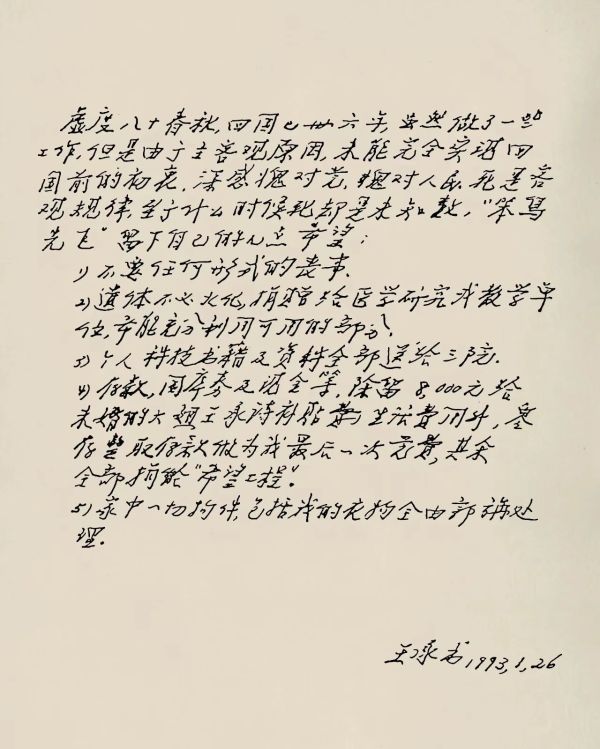 虚度八十春秋,回国已卅六年,虽然做了一些
工作,但是由于主客观原因,未能完全实现回
国前的初衷,深感愧对党,愧对人民.死是客
观规律,至于什么时候死却是未知数,“笨鸟
先飞”留下自己的几点希望:
1)不要任何形式的丧事.
2)遗体不必火化,捐赠给医学研究或教学单
位,希能充分利用可用的部分.
3)个人科技书籍及资料全部送给三院.
4)存款,国库券及现金等,除留8,000元给
未婚的大姐王承诗补贴生活费用外,
存款做为我最后一次党费,其余
全部捐给“希望工程”.
5)家中一切物件,包括我的衣物全由郭娲处
理.
王承书1993,1,26